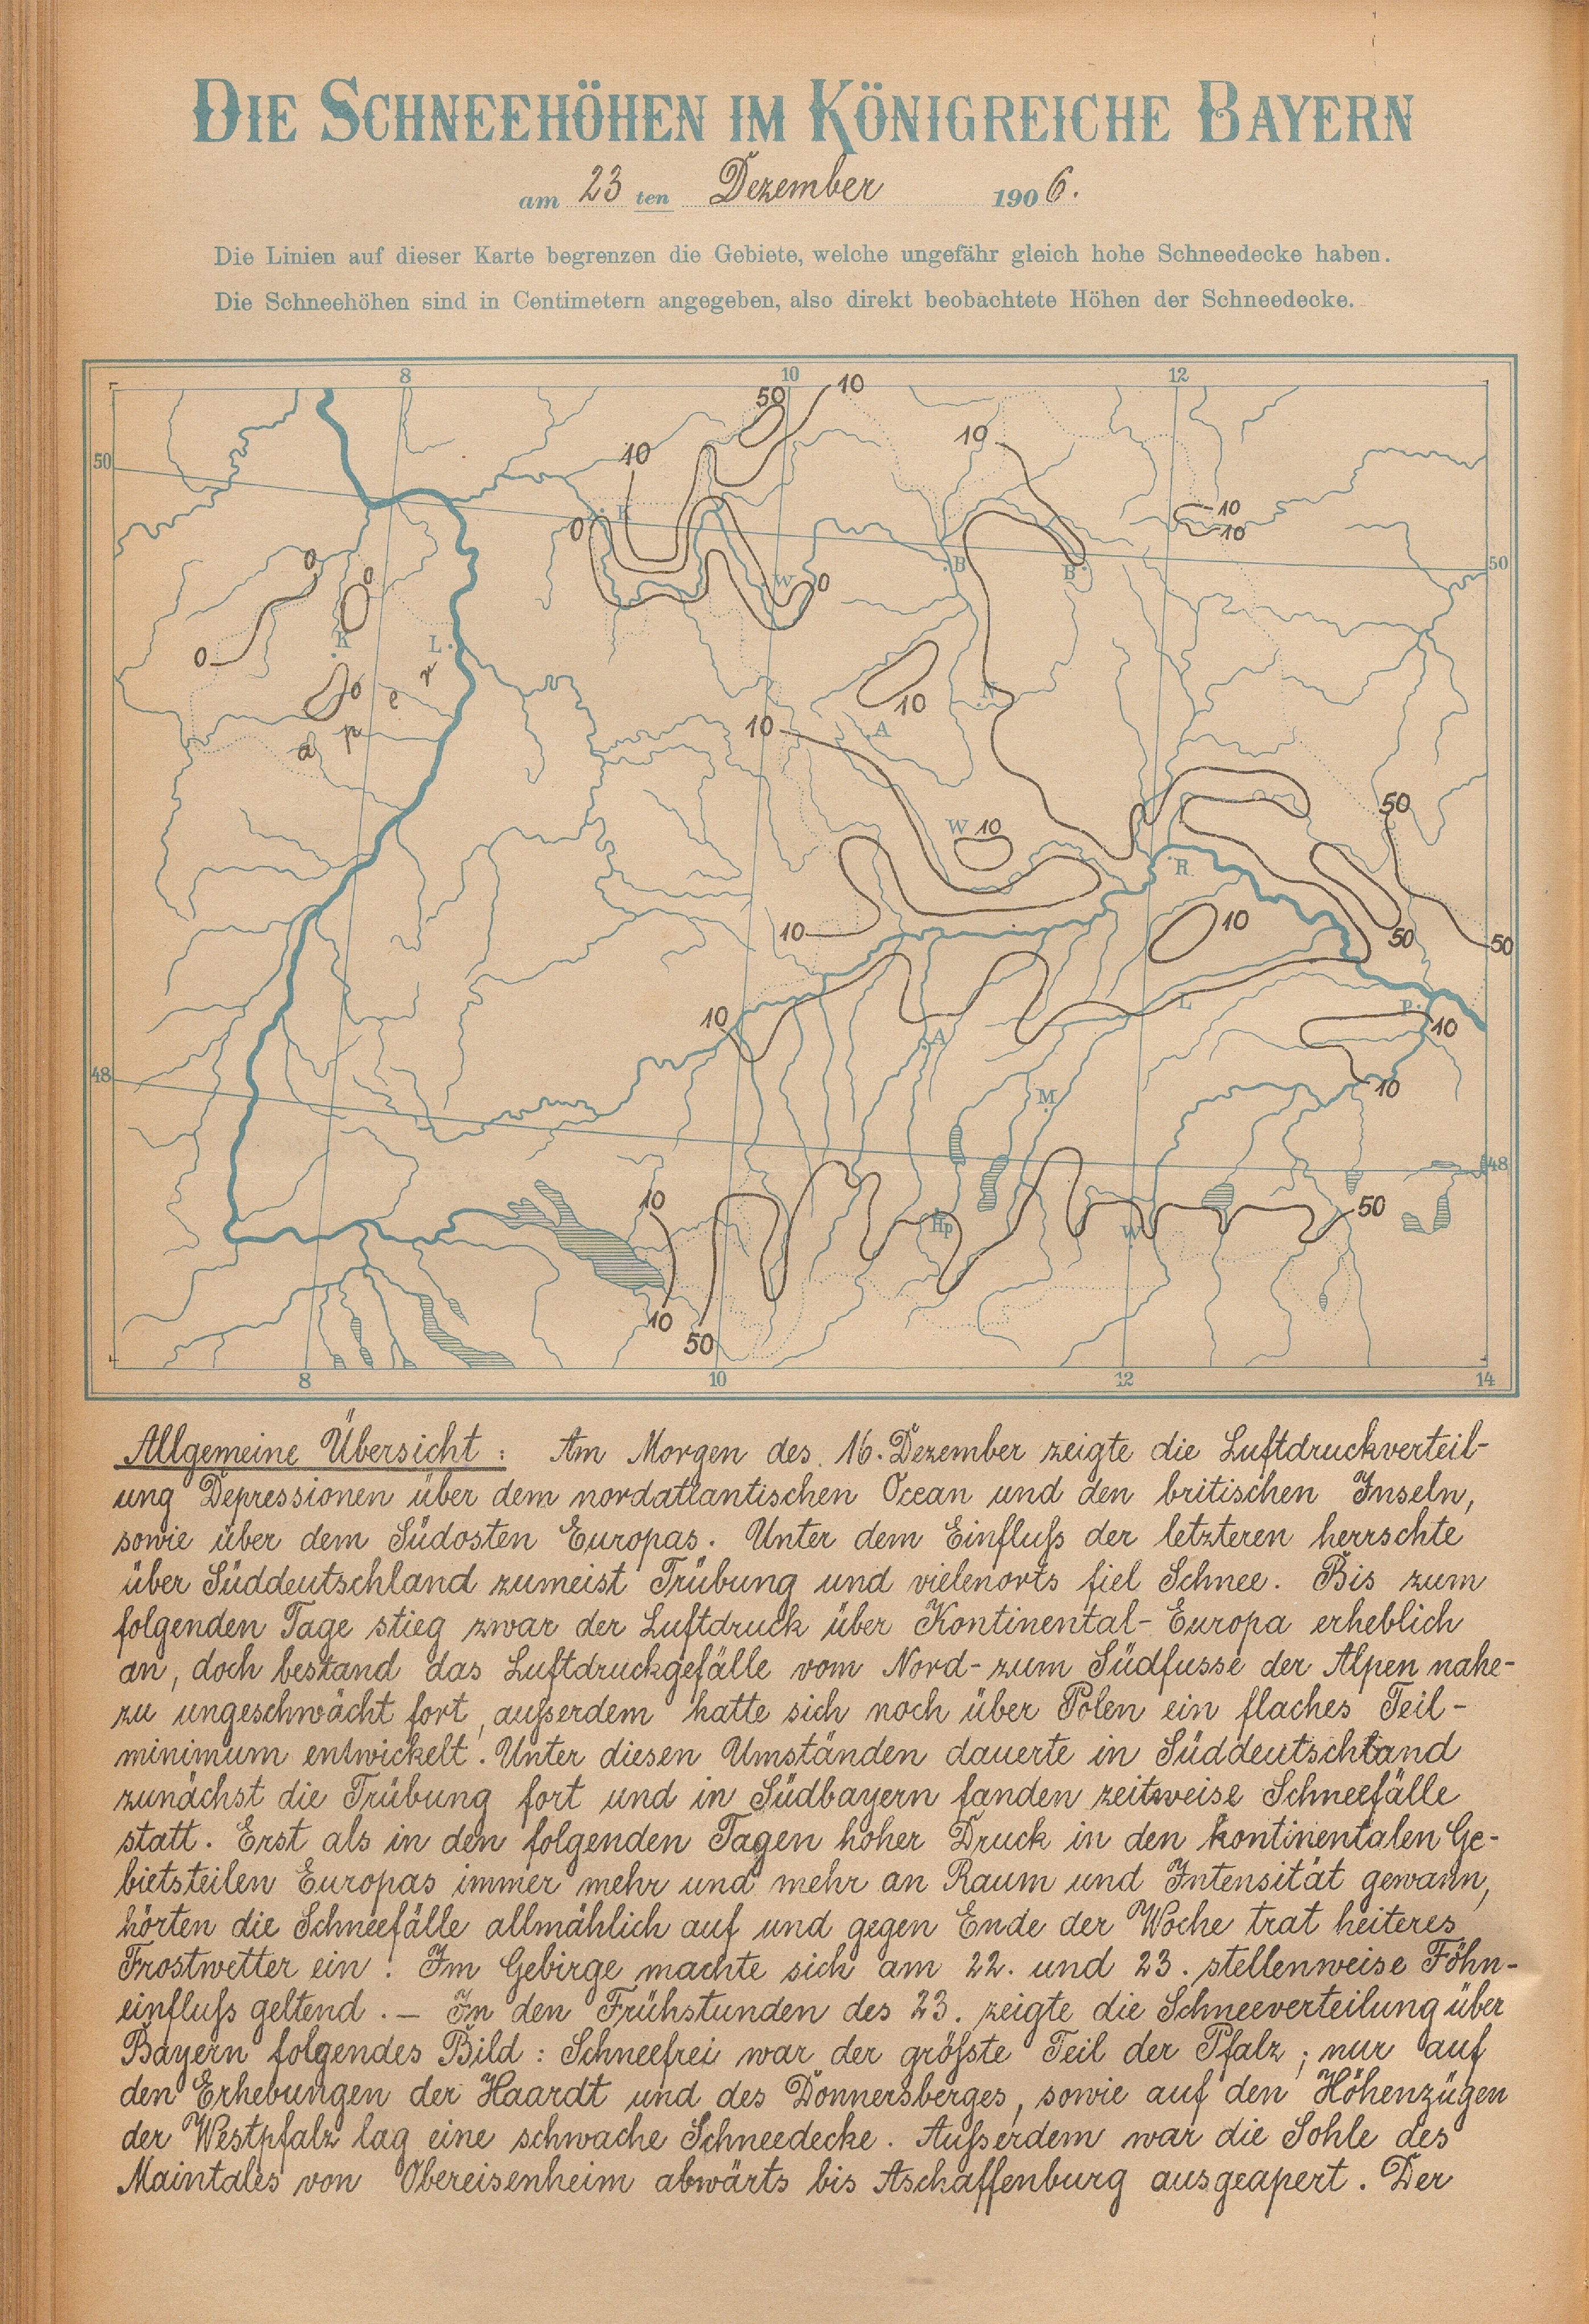 DIE SCHNEEHÖHEN IM KÖNIGREICHE BAYERN
am 23 ten Dezember 1906.
Die Linien auf dieser Karte begrenzen die Gebiete, welche ungefähr gleich hohe Schneedecke haben.
Die Schneehöhen sind in Centimetern angegeben, also direkt beobachtete Höhen der Schneedecke.
8 10 12
50 10
10 10
50
10
10
0 K
0 0
W 0 B B 50
0
K L
0
r
0 e
10 N
p
a
10 A
50
W 10
R
10
10 50 50
10
L P
10
A
48
M 10
48
10
50
Hp W
10
50
8 10 12 14
Allgemeine Übersicht : Am Morgen des 16. Dezember zeigte die Luftdruckverteil-
ung Depressionen über dem nordatlantischen Ocean und den britischen Inseln,
sowie über dem Südosten Europas. Unter dem Einfluß der letzteren herrschte
über Süddeutschland zumeist Trübung und vielenorts fiel Schnee. Bis zum
folgenden Tage stieg zwar der Luftdruck über Kontinental-Europa erheblich
an, doch bestand das Luftdruckgefälle vom Nord- zum Südfusse der Alpen nahe-
zu ungeschwächt fort, außerdem hatte sich noch über Polen ein flaches Teil-
minimum entwickelt. Unter diesen Umständen dauerte in Süddeutschland
zunächst die Trübung fort und in Südbayern fanden zeitweise Schneefälle
statt. Erst als in den folgenden Tagen hoher Druck in den kontinentalen Ge-
bietsteilen Europas immer mehr und mehr an Raum und Intensität gewann,
hörten die Schneefälle allmählich auf und gegen Ende der Woche trat heiteres
Frostwetter ein. Im Gebirge machte sich am 22. und 23. stellenweise Föhn-
einfluß geltend. — In den Frühstunden des 23. zeigte die Schneeverteilung über
Bayern folgendes Bild : Schneefrei war der größte Teil der Pfalz; nur auf
den Erhebungen der Haardt und des Donnersberges, sowie auf den Höhenzügen
der Westpfalz lag eine schwache Schneedecke. Außerdem war die Sohle des
Maintales von Obereisenheim abwärts bis Aschaffenburg ausgeapert. Der